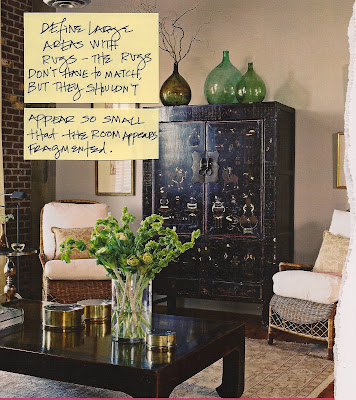 DEFINE LARGE
AREAS WITH
RUGS - THE RUGS
DON'T HAVE TO MATCH,
BUT THEY SHOULDN'T
APPEAR SO SMALL
that THE ROOM APPEARS
FRAGMENTED.